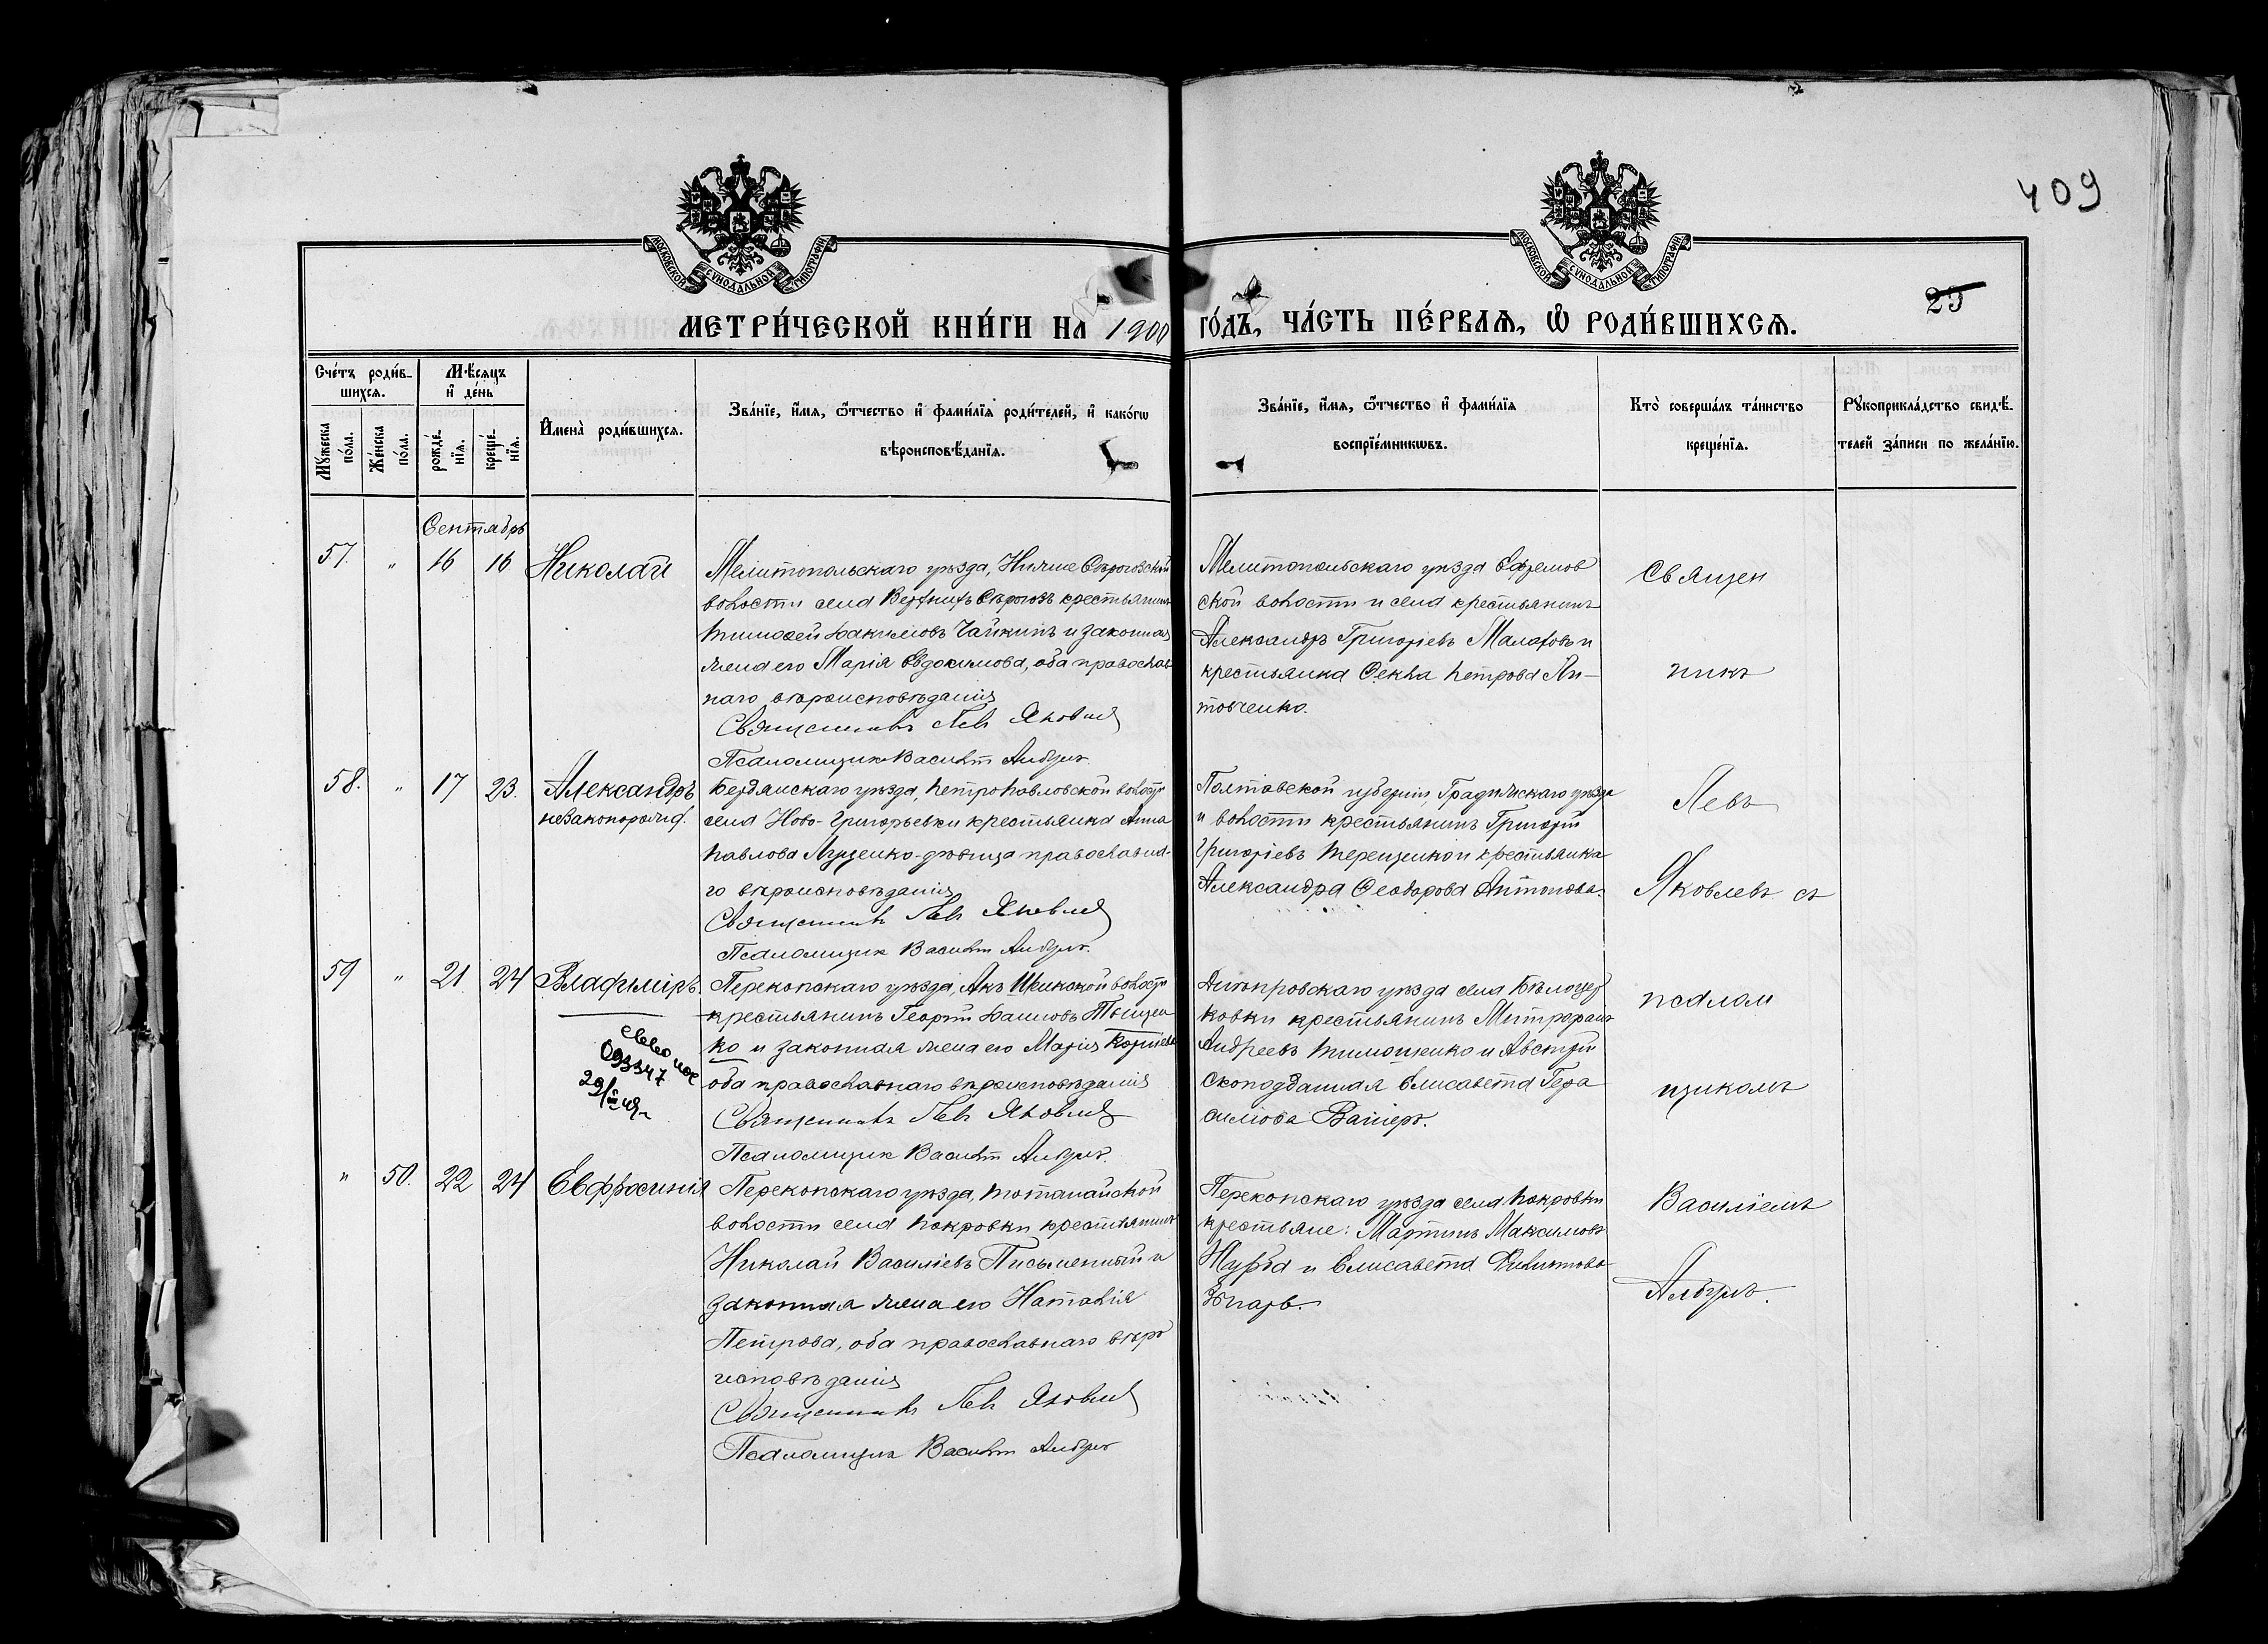 409
МОСКОВСКОЙ СѴНОДАЛЬНОЙ ТИПОГРАФІИ.
МОСКОВСКОЙ СѴНОДАЛЬНОЙ ТИПОГРАФІИ.
25
МЕТРИ́ЧЕСКОЙ КНИ́ГИ НА 1900 ГО́ДЪ, ЧА́СТЬ ПЕ́РВАѦ, Ѽ РОДИ́ВШИХСѦ.
Сче́тъ роди́в-
шихсѧ.
Мѣ́сѧцъ
и҆ де́нь
Мꙋжеска
по́ла.
Же́нска
по́ла.
рожде́-
нїѧ.
креще́-
нїѧ.
И҆мена̀ роди́вшихсѧ.
Зва́нїе, и҆́мѧ, ѻ҆́тчество и҆ фами́лїѧ роди́телей, и҆ како́гѡ
вѣроисповѣ́данїѧ.
Зва́нїе, и҆́мѧ, ѻ҆́тчество и҆ фами́лїѧ
воспрїе́мникѡвъ.
Кто̀ соверша́лъ та́инство
креще́нїѧ.
Рꙋкоприкла́дство свидѣ́-
телей за́писи по жела́нїю.
Сентябрь
57. " 16 16 Николай
Мелитопольскаго уѣзда, Нижне Сѣрогозской
волости села Верхнихъ Сѣрогозъ крестьянинъ
Тимоѳей Іакимовъ Чайкинъ и законная
жена его Марія Евдокимова, оба православ
наго вѣроисповѣданія
Священникъ Левъ Яковлев
Псаломщик Василий Албулъ
Мелитопольскаго уѣзда Ефремов
ской волости и села крестьянинъ
Александръ Григоріевъ Малаховъ и
крестьянка Ѳекла Петрова Ли-
товченко.
Священ
никъ
58. " 17 23. Александръ
незаконорожд.
Бердянскаго уѣзда, Петропавловской волости
села Ново-Григорьевки крестьянка Анна
Павлова Луценко-дѣвица православна-
го вѣроисповѣданія
Священникъ Левъ Яковлев
Псаломщик Василий Албулъ.
Полтавской губерніи, Градижскаго уѣзда
и волости крестьянинъ Григорій
Григоріевъ Терещенко и крестьянка
Александра Ѳеодорова Антонова.
Левъ
Яковлевъ съ
59 " 21 24 Владиміръ
093347
Перекопскаго уѣзда, Акъ Шеикской волости
крестьянинъ Георгій Іаковъ Тищен
ко и законная жена его Марія Корнѣева
оба православнаго вѣроисповѣданія
Священникъ Левъ Яковлев
Псаломщик Василий Албулъ
Днѣпровскаго уѣзда села Бѣлоцер
ковки крестьянинъ Митрофанъ
Андреевъ Тимошенко и Австрій
скоподданная Елисавета Гера
симова Вайнеръ.
псалом
щикомъ
" 50. 22 24 Евфросинія
Перекопскаго уѣзда, Тотанайской
волости села Покровки крестьянинъ
Николай Василіевъ Письменный и
законная жена его Наталія
Петрова, оба православнаго вѣро
исповѣданія
Священникъ Левъ Яковлев
Псаломщик Василий Албулъ
Перекопскаго уѣзда села Покровки
крестьяне: Мартинъ Максимовъ
и Елисавета Филиппова
Василіемъ
Албулъ.